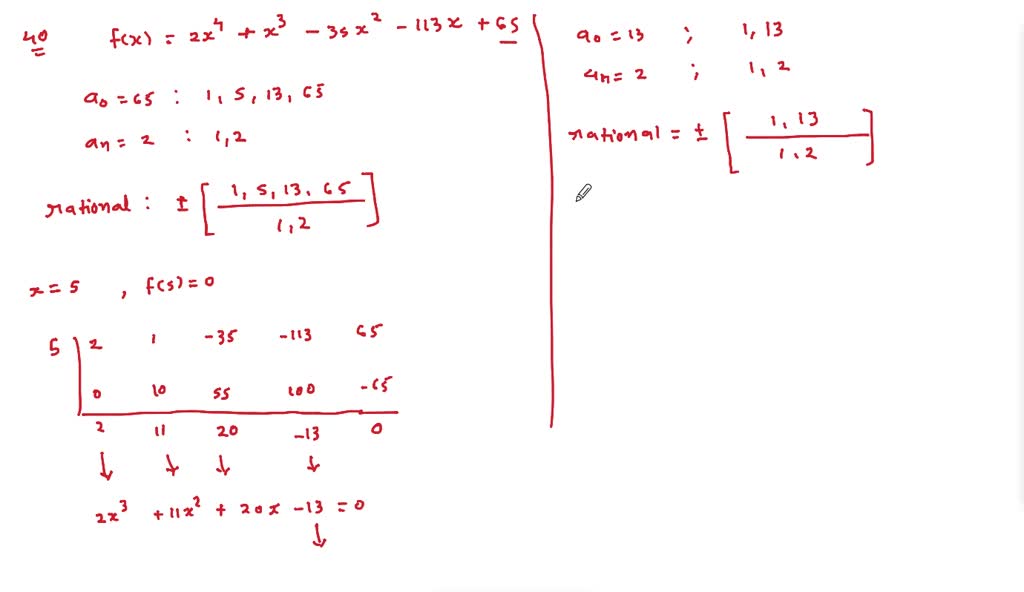 40 f(x) = 2x⁴ + x³ - 35x² - 113x + 65
a₀ = 65 : 1, 5, 13, 65
aₙ = 2 : 1, 2
rational : ± [ 1, 5, 13, 65 / 1, 2 ]
x = 5 , f(5) = 0
5 | 2 1 -35 -113 65
0 10 55 100 -65
2 11 20 -13 0
↓ ↓ ↓ ↓
2x³ + 11x² + 20x - 13 = 0
↓
a₀ = 13 ; 1, 13
aₙ = 2 ; 1, 2
rational = ± [ 1, 13 / 1, 2 ]